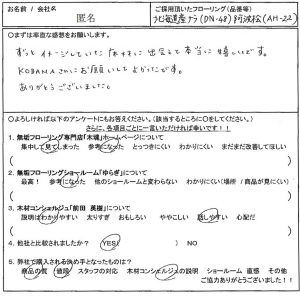 お名前 / 会社名
匿名
ご採用頂いたフローリング(品番等)
北海道産ナラ(DN-48) 阿波松(AH-22)
○まずは率直な感想をお願いします。
ずっとイメージしていた床材に出会えて本当に嬉しいです。
KODAMAさんにお願いしてよかったです。
ありがとうございました。
○よろしければ以下のアンケートにもお答えください。(該当するところに○をしてください。)
さらに、各項目ごとに一言いただければ幸いです!!
1. 無垢フローリング専門店「木魂」ホームページについて
集中して見てしまった 参考になった とっつきにくい わかりにくい まだまだ改善してほしい
2. 無垢フローリングショールーム「ゆらぎ」について
最高! 参考になった 他のショールームと変わらない わかりにくい(場所 / 商品が見にくい)
3. 木材コンシェルジュ「前田 英樹」について
説明はわかりやすい 太りすぎ おもしろい ややこしい 話しやすい 心配だ
4. 他社と比較されましたか? YES! NO
5. 弊社で購入される決め手となったものは?
商品の質 価格 スタッフの対応 木材コンシェルジュの説明 ショールーム 直感 その他
ご協力ありがとうございました!!